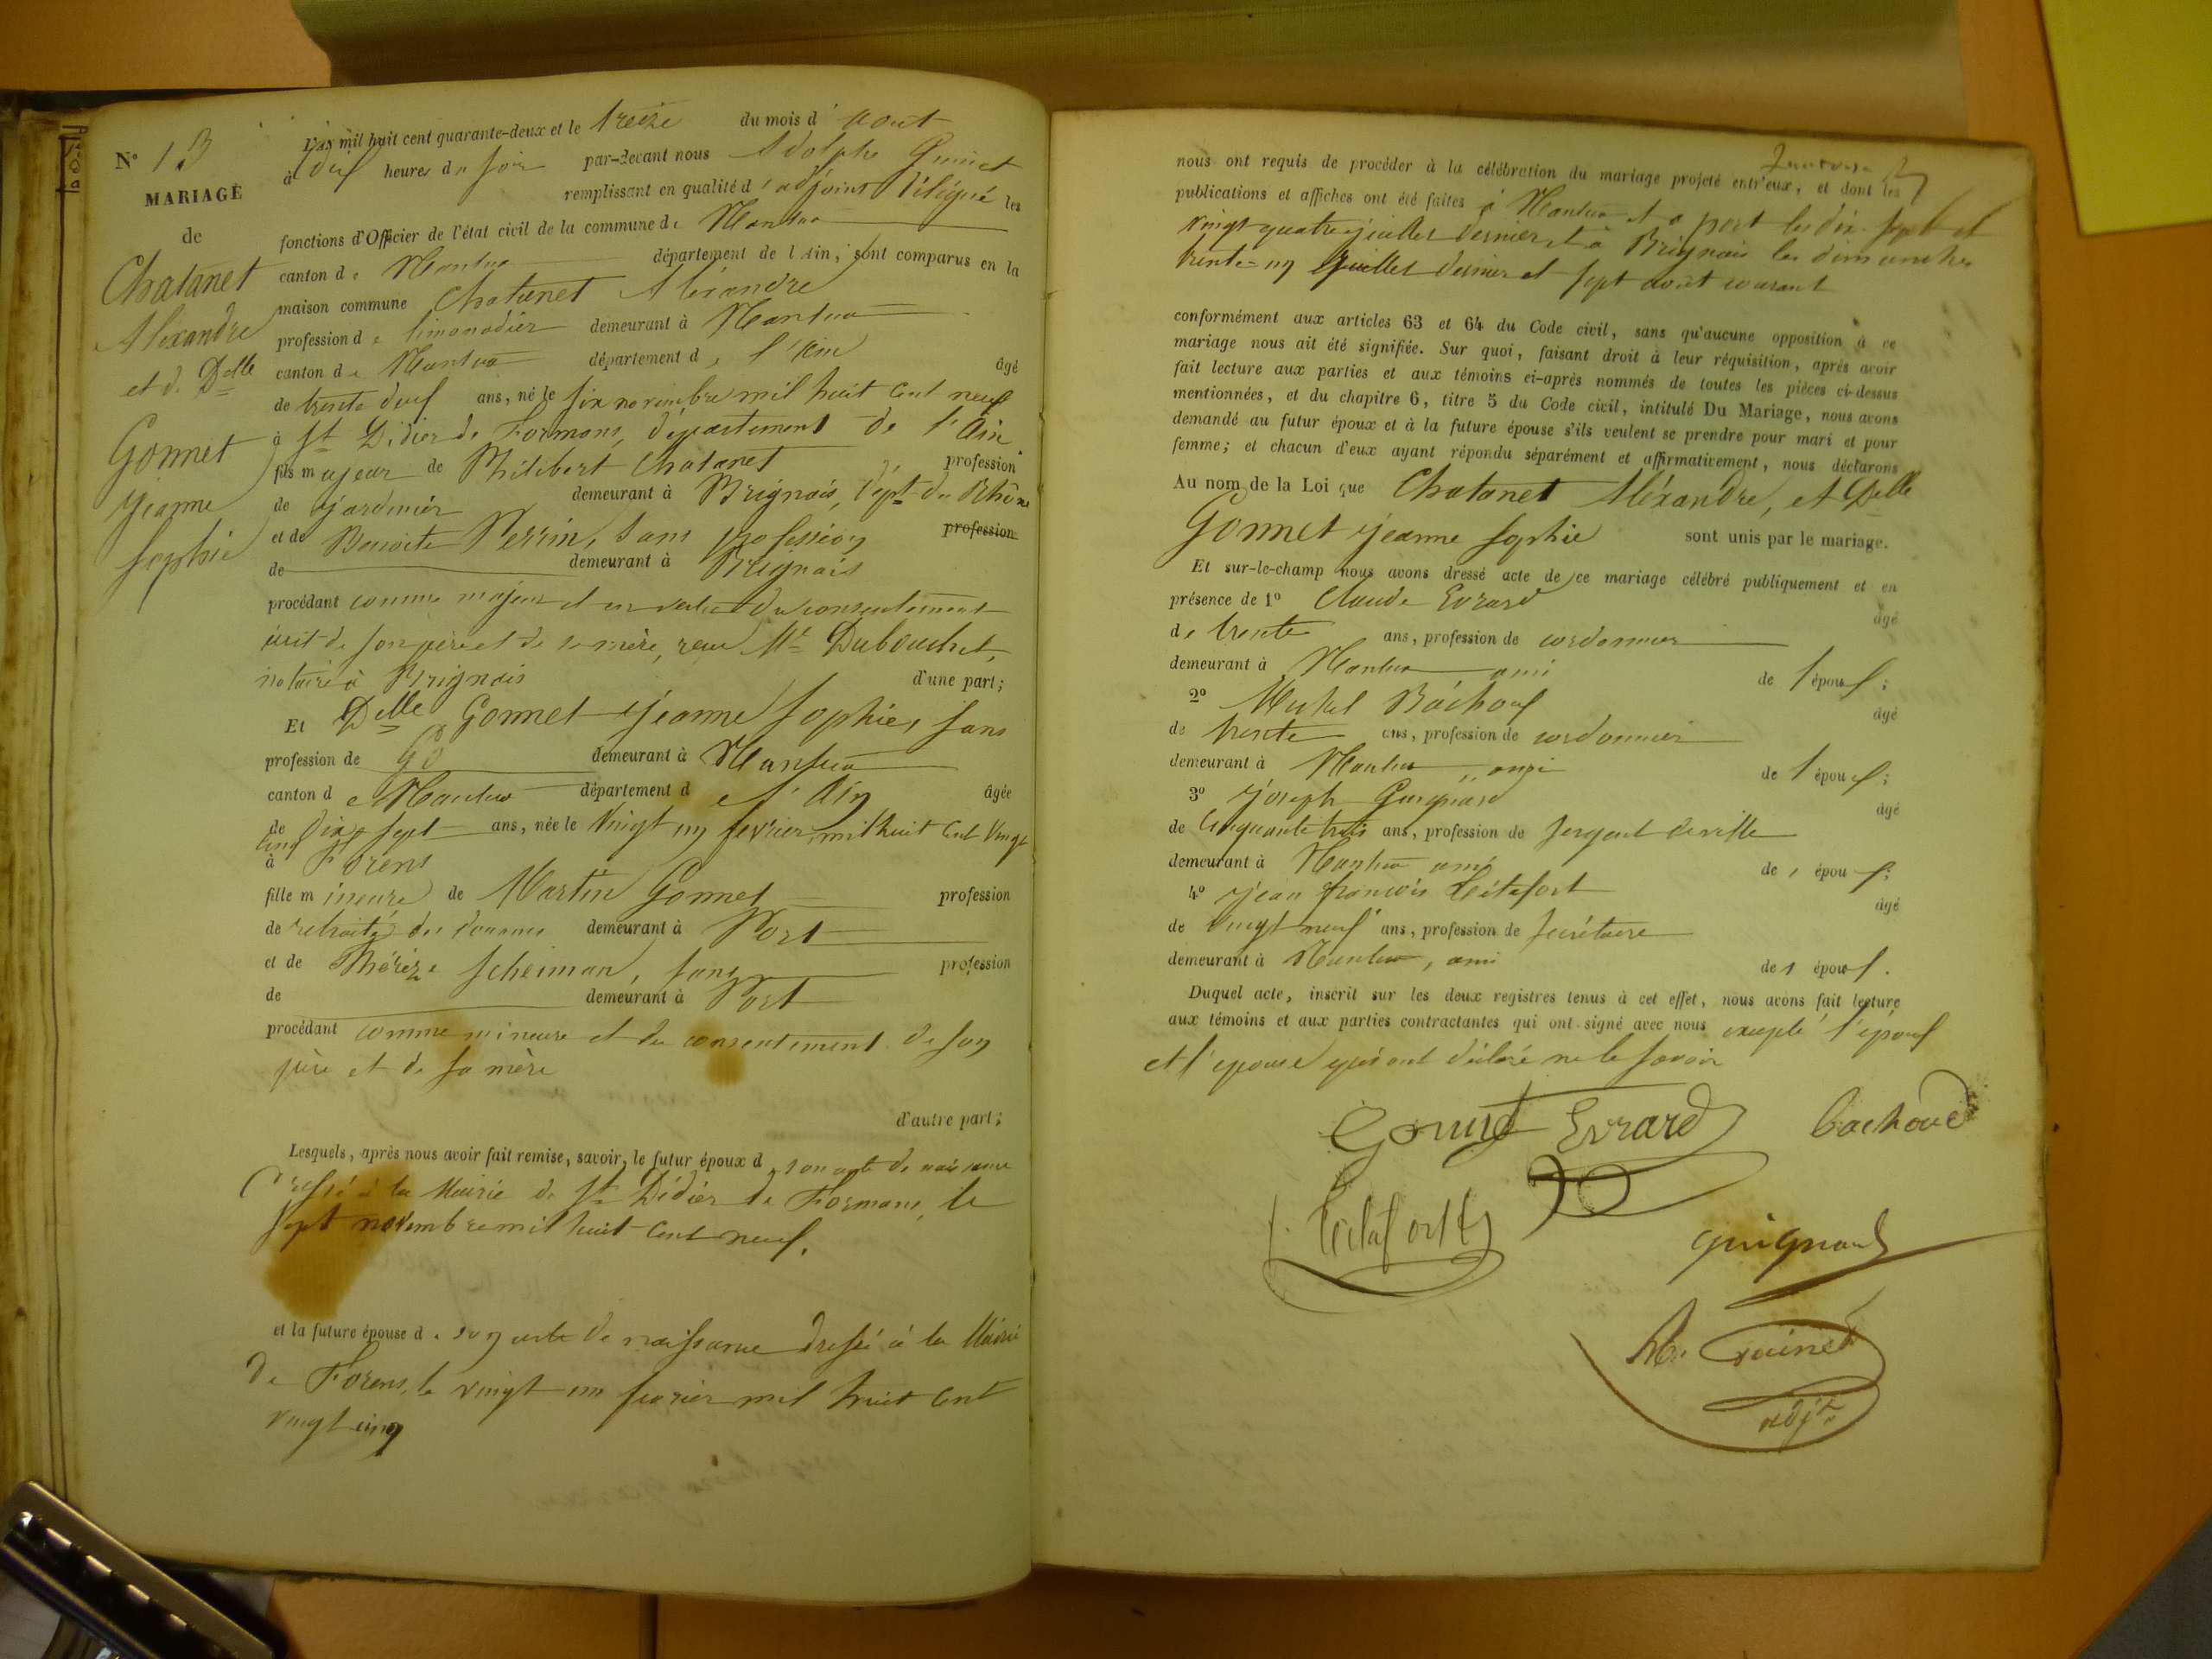 N° 13
MARIAGE
de
Chatanet
Alexandre
et de Delle
Gonnet
jeanne
Sophie
L'an mil huit cent quarante-deux et le treize du mois d'aout
à heures du soir par-devant nous Adolphe Guinet
remplissant en qualité d'adjoint délégué les
fonctions d'Officier de l'état civil de la commune de Nantua
canton de Nantua département de l'Ain, sont comparus en la
maison commune Chatanet Aléxandre
profession de limonadier demeurant à Nantua
canton de Nantua département de l'Ain âgé
de trente deux ans, né le six novembre mil huit cent neuf
à St Didier de Formans, département de l'Ain
fils majeur de Philibert Chatanet profession
de jardinier demeurant à Brignais, dépt du Rhône
et de Benoite Perrin, sans profession profession
de demeurant à Brignais
procédant comme majeur et en vertu du consentement
écrit de son père et de sa mère, reçu Mt Dubouchet,
notaire à Brignais d'une part;
Et Delle Gonnet jeanne Sophie, sans
profession de demeurant à Nantua
canton de Nantua département de l'Ain âgée
de dix sept ans, née le vingt un fevrier mil huit cent vingt
cinq
à Forens
fille mineure de Martin Gonnet profession
de retraité des douanes demeurant à Port
et de Thérèze Scheiman, sans profession
de demeurant à Port
procédant comme mineure et du consentement de son
père et de sa mère
d'autre part;
Lesquels, après nous avoir fait remise, savoir, le futur époux de son acte de naissance
dressé à la Mairie de St Didier de Formans, le
sept novembre mil huit cent neuf.
et la future épouse de son acte de naissance dressé à la Mairie
de Forens, le vingt un fevrier mil huit cent
vingt cinq
nous ont requis de procéder à la célébration du mariage projeté entr'eux, et dont les
publications et affiches ont été faites à Nantua et a port les dix sept et
vingt quatre juillet dernier et à Brignais les dimanches
trente-un juillet dernier et sept aout courant
conformément aux articles 63 et 64 du Code civil, sans qu'aucune opposition à ce
mariage nous ait été signifiée. Sur quoi, faisant droit à leur réquisition, après avoir
fait lecture aux parties et aux témoins ci-après nommés de toutes les pièces ci-dessus
mentionnées, et du chapitre 6, titre 5 du Code civil, intitulé Du Mariage, nous avons
demandé au futur époux et à la future épouse s'ils veulent se prendre pour mari et pour
femme; et chacun d'eux ayant répondu séparément et affirmativement, nous déclarons
Au nom de la Loi que Chatanet Aléxandre, et Delle
Gonnet jeanne Sophie sont unis par le mariage.
Et sur-le-champ nous avons dressé acte de ce mariage célébré publiquement et en
présence de 1° Claude Evrard âgé
de trente ans, profession de cordonnier
demeurant à Nantua ami de l'époux;
2° Michel Bachoux âgé
de trente ans, profession de cordonnier
demeurant à Nantua, ami de l'époux;
3° joseph Guignard âgé
de cinquante trois ans, profession de sergent de ville
demeurant à Nantua ami de l'époux;
4° jean françois Létafort âgé
de vingt neuf ans, profession de secrétaire
demeurant à Nantua, ami de l'époux.
Duquel acte, inscrit sur les deux registres tenus à cet effet, nous avons fait lecture
aux témoins et aux parties contractantes qui ont signé avec nous excepté l'époux
et l'épouse qui ont déclaré ne le savoir
Gonnet Evrard
Létafort
guignard
Guinet
adjt